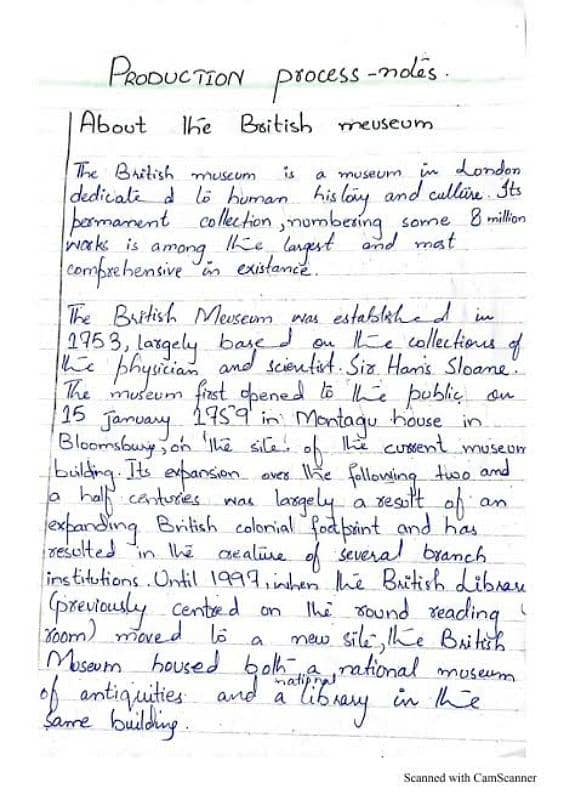 PRODUCTION process-notes.
About the British meuseum
The British museum is a museum in London
dedicate d to human history and culture. Its
permament collection, numbering some 8 million
works is among the largest and most
comprehensive in existance.
The British Meuseum was established in
1953, largely based on the collections of
the physician and scientist. Sir Hans Sloane.
The museum first opened to the public on
15 January 1959 in Montagu house in
Bloomsbury, on the site of the current museum
building. Its expansion over the following two and
a half centuries was largely a result of an
expanding British colonial footprint and has
resulted in the creature of several branch
institutions. Until 1997, when the British Library
(previously centred on the round reading
room) moved to a new site, the British
Museum housed both a national museum
of antiquities and a national library in the
same building.
Scanned with CamScanner